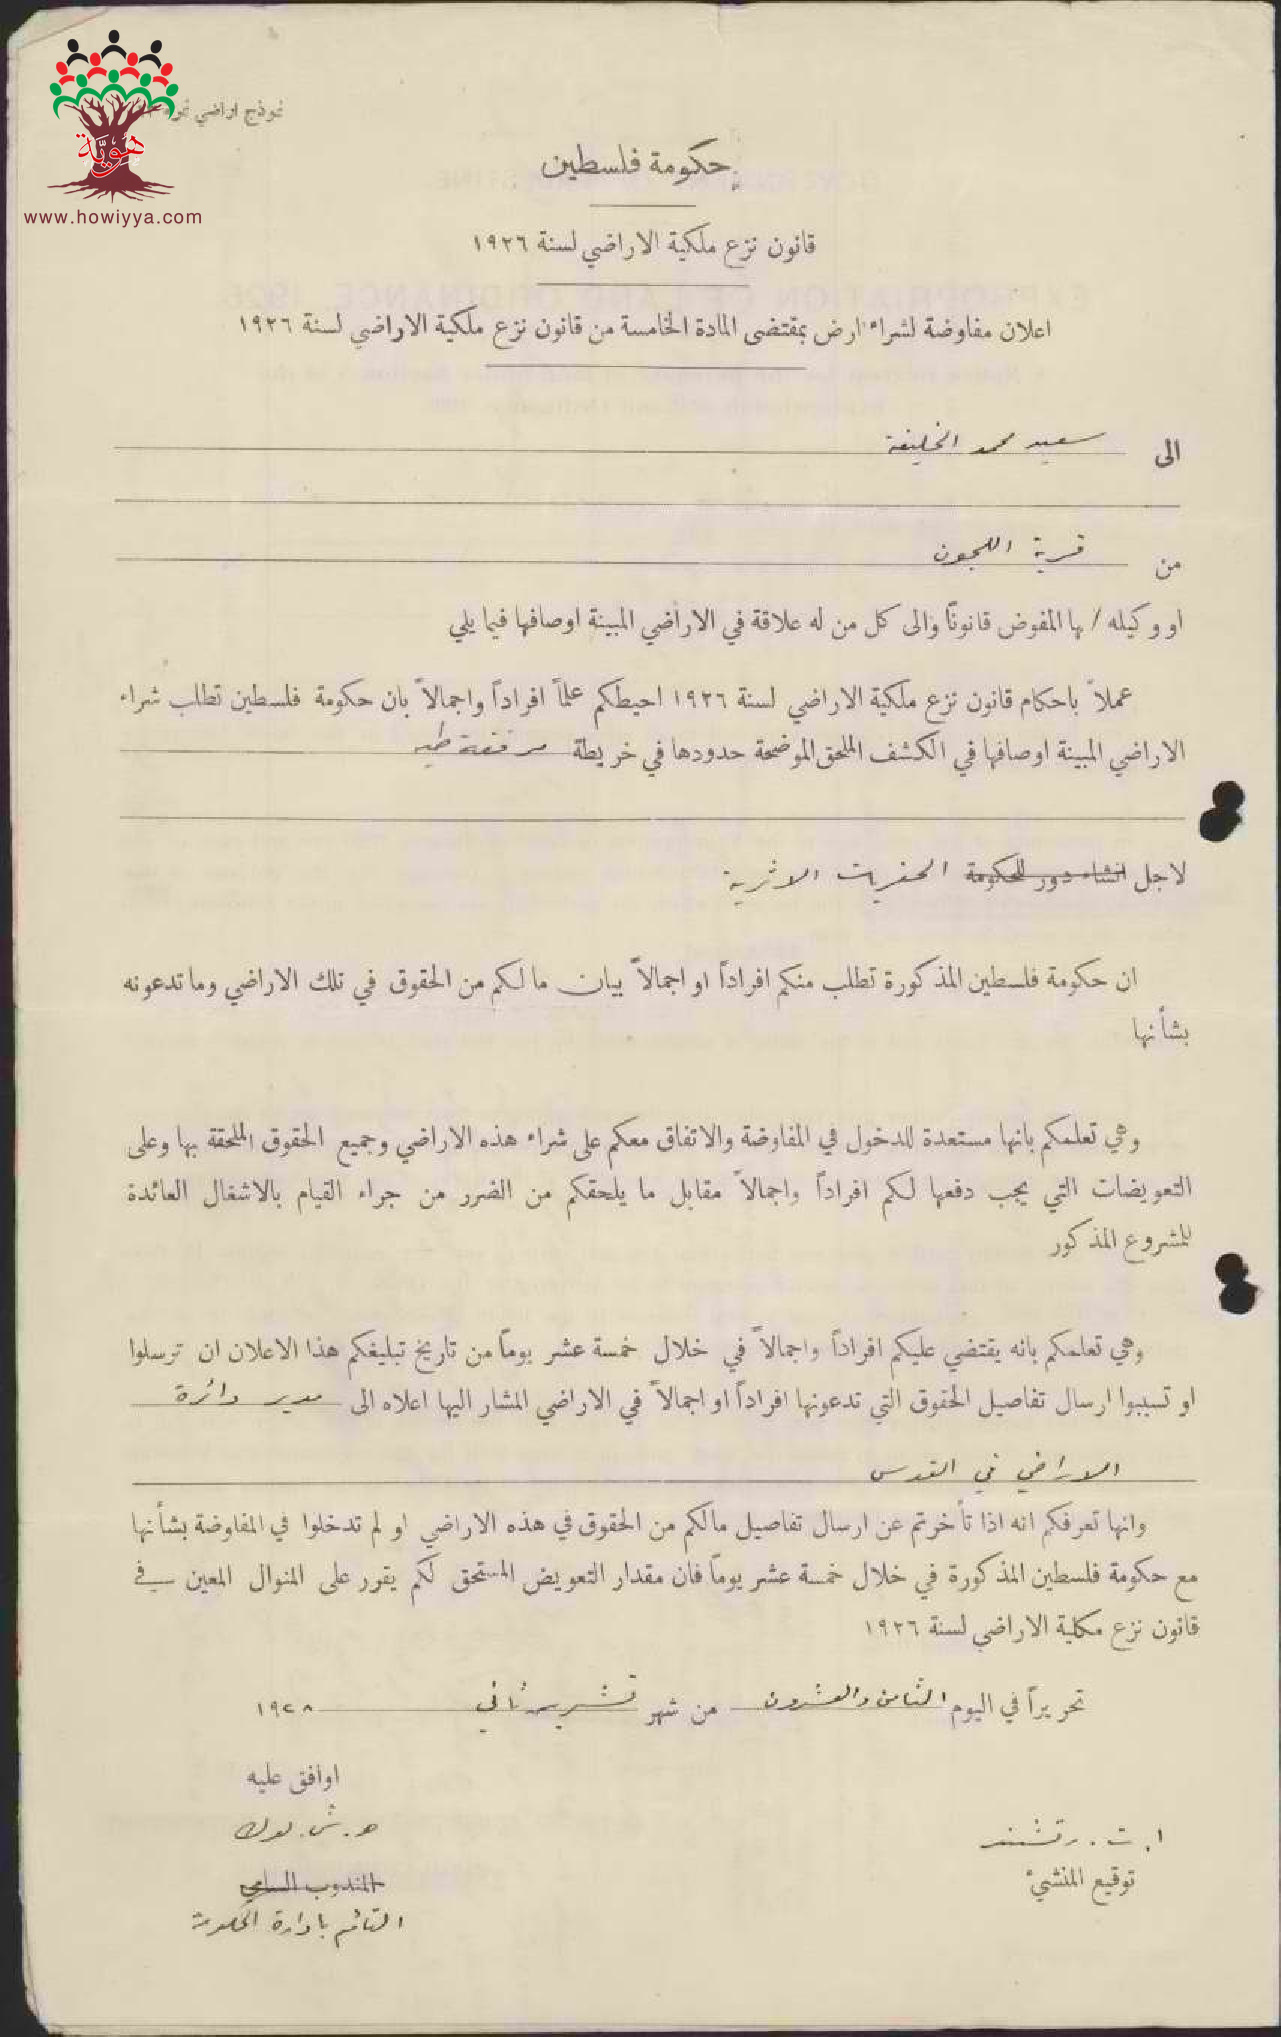 هوية
www.howiyya.com
نموذج اراضي نمرة
حكومة فلسطين
قانون نزع ملكية الاراضي لسنة ١٩٢٦
اعلان مفاوضة لشراء ارض بمقتضى المادة الخامسة من قانون نزع ملكية الاراضي لسنة ١٩٢٦
الى سعيد محمد الخليفة
من قرية اللجون
او وكيله / ها المفوض قانونًا والى كل من له علاقة في الاراضي المبينة اوصافها فيما يلي
عملاً باحكام قانون نزع ملكية الاراضي لسنة ١٩٢٦ احيطكم علمًا افرادًا واجمالاً بان حكومة فلسطين تطلب شراء
الاراضي المبينة اوصافها في الكشف الملحق الموضحة حدودها في خريطة مرفقة طيه
لاجل انشاء دور للحكومة الحفريات الاثرية
ان حكومة فلسطين المذكورة تطلب منكم افرادًا او اجمالاً بيان ما لكم من الحقوق في تلك الاراضي وما تدعونه
بشأنها
وهي تعلمكم بانها مستعدة للدخول في المفاوضة والاتفاق معكم على شراء هذه الاراضي وجميع الحقوق الملحقة بها وعلى
التعويضات التي يجب دفعها لكم افرادًا واجمالاً مقابل ما يلحقكم من الضرر من جراء القيام بالاشغال العائدة
للمشروع المذكور
وهي تعلمكم بانه يقتضي عليكم افرادًا واجمالاً في خلال خمسة عشر يومًا من تاريخ تبليغكم هذا الاعلان ان ترسلوا
او تسببوا ارسال تفاصيل الحقوق التي تدعونها افرادًا او اجمالاً في الاراضي المشار اليها اعلاه الى مدير دائرة
الاراضي في القدس
وانها تعرفكم انه اذا تأخرتم عن ارسال تفاصيل مالكم من الحقوق في هذه الاراضي او لم تدخلوا في المفاوضة بشأنها
مع حكومة فلسطين المذكورة في خلال خمسة عشر يومًا فان مقدار التعويض المستحق لكم يقرر على المنوال المعين في
قانون نزع مكلية الاراضي لسنة ١٩٢٦
تحريرًا في اليوم الثامن والعشرون من شهر تشرين ثاني ١٩٢٨
اوافق عليه
ه. ش. لوك
المندوب السامي
القائم بادارة الحكومة
ا. ت. رتشمند
توقيع المنشيء